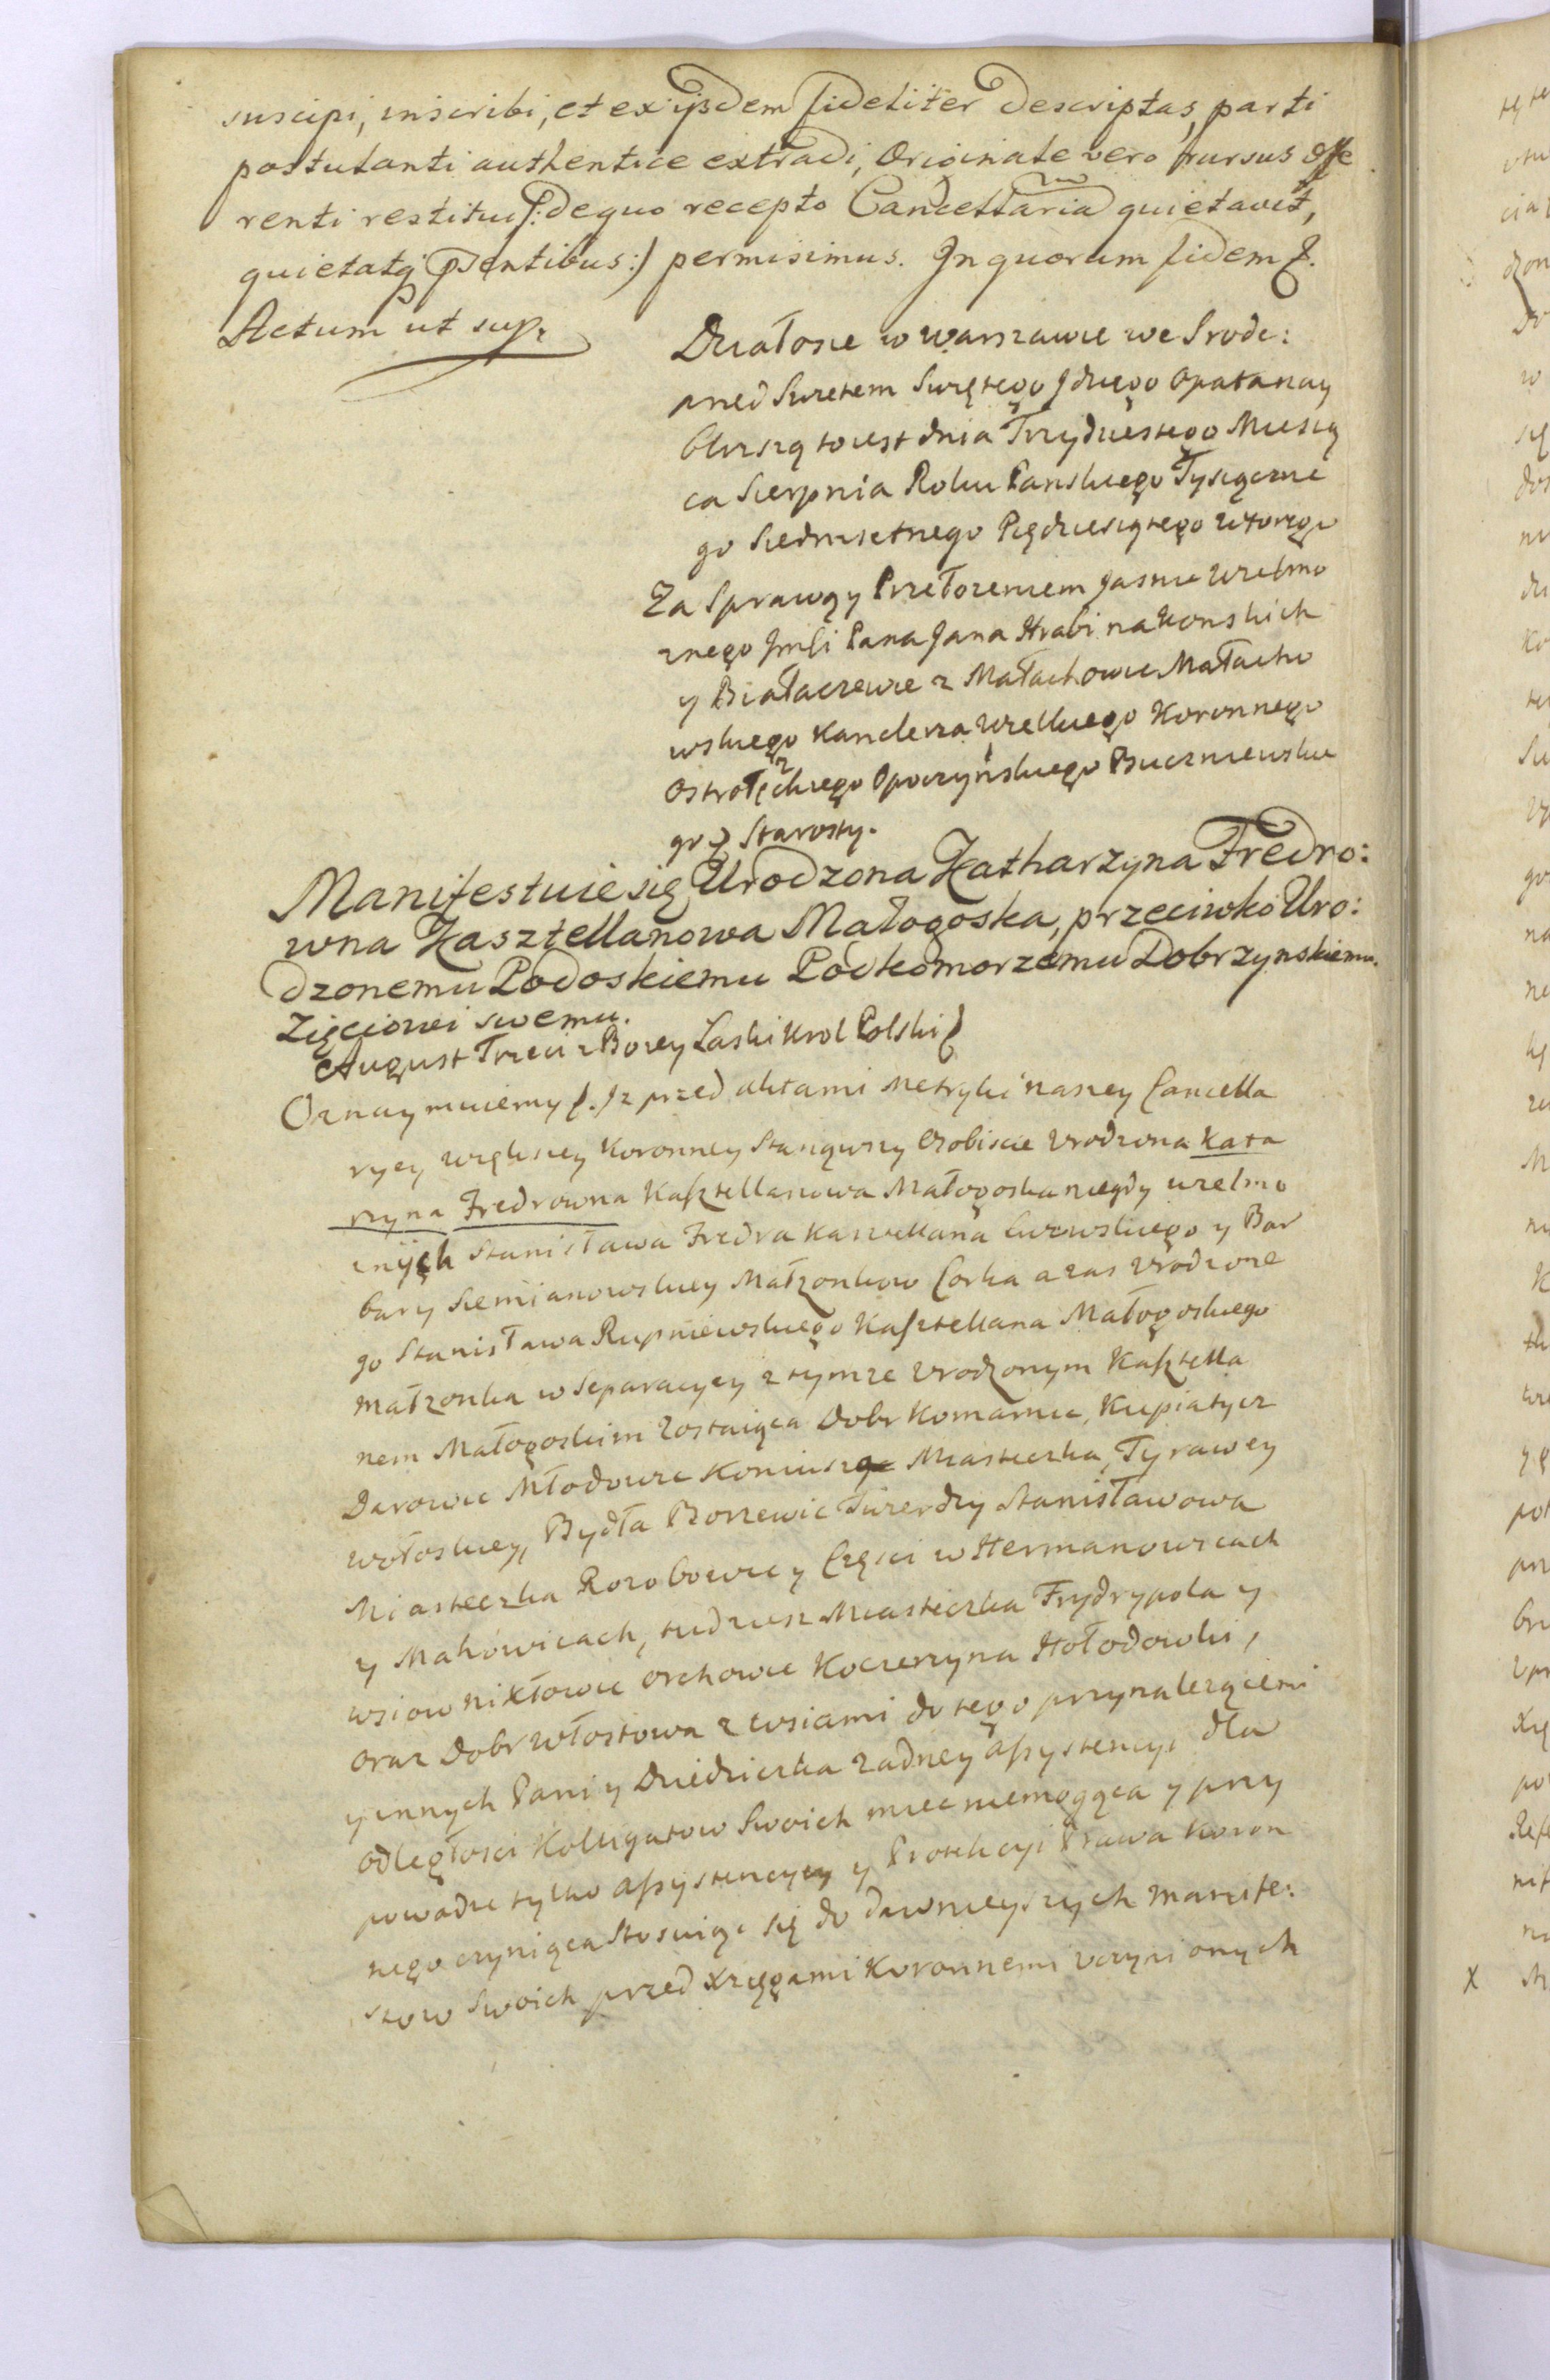 suscipi, inscribi, et ex ijsdem fideliter descriptas, parti
postulanti authentice extradi, Originale vero rursus offe
renti restitui /: de quo recepto Cancellaria quietavit,
quietatq; psentibus :/ permisimus. In quorum fidem &.
Actum ut supr
Działosie w Warszawie we Srode:
przed Swietem Swiętego Jdziego Opata nay
bliszą to iest dnia Trzydziestego Miesią
ca Sierpnia Roku Panskiego Tysiączne
go Siedmsetnego Pięćdziesiątego wtorego
Za Sprawą y Przełożeniem Jasnie Wielmo
żnego Jmści Pana Jana Hrabi na Konskich
y Białaczewie z Małachowic Małacho
wskiego Kanclerza Wielkiego Koronnego
Ostrołęckiego Opoczyńskiego Buczniewskie
go & Starosty.
Manifestuie się Urodzona Katharzyna Fredro:
wna Kasztellanowa Małogoska, przeciwko Uro:
dzonemu Podoskiemu Podkomorzemu Dobrzynskiemu
Zięciowi swemu.
August Trzeci z Bozey Łaski Krol Polski &
Oznaymuiemy &. Jz przed aktami Metryki naszey Cancella
ryey większey Koronney Stanąwszy Osobiscie Urodzona Kata
rzyna Fredrowna Kasztellanowa Małogoska niegdy wielmo
żnych Stanisława Fredra Kasztellana y Bar
bary Siemianowskiey Małżonkow Corka a zas Urodzone
go Stanisława Rupniewskiego Kasztellana Małogoskiego
Małżonka w Separacyey z tymże Urodzonym Kasztella
nem Małogoskim Zostaiąca Dobr Komarnic, Kupiatycz
Darowic Młodowic Koniusz Miasteczka, Tyrawey
wołoskiey, Bydła Borzewic Twierdzy Stanisławowa
Miasteczka Rozobowic y Części w Hermanowicach
y Makowicach, tudzież Miasteczka Frydrypola y
wsiow Nixtowic Orchowic Koczerzyna Hołodowki,
oraz Dobr Włostowa z wsiami do tego przynależącemi
y innych Pani y Dziedziczka żadney assystencyi dla
odległosci Kolligatow Swoich miec niemogąca y przy
powadze tylko assystencyey y Protekcyi Prawa Koron
nego czyniąca stosuiąc się do dawnieyszych manife:
stow Swoich przed Xięgami Koronnemi uczynionych